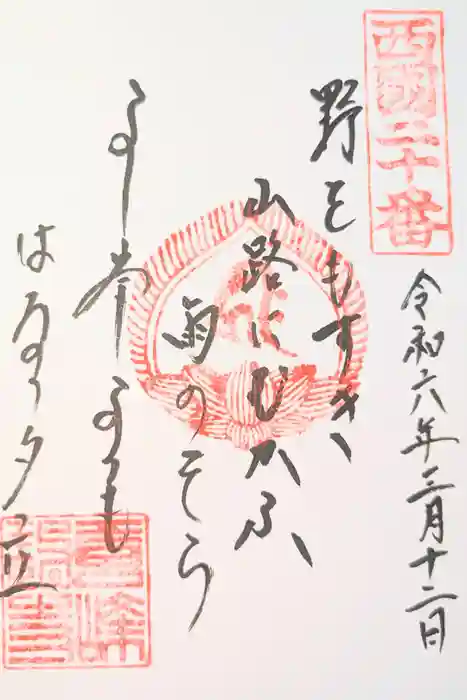 西國二十番
令和六年三月十二日
野をもすぎ
山路にむかふ
雨のそら
よし峯よりも
はるる夕立